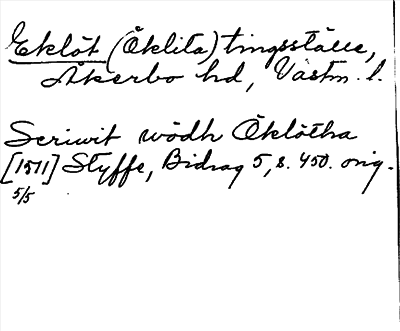 Eklöt (Öklita) tingsställe,
Åkerbo hd, Västm. l.
Scriwit wödh Öklötha
[1511] Styffe, Bidrag 5, s. 450. orig.
5/5